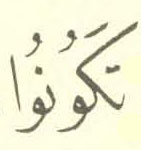 تَكُونُوا